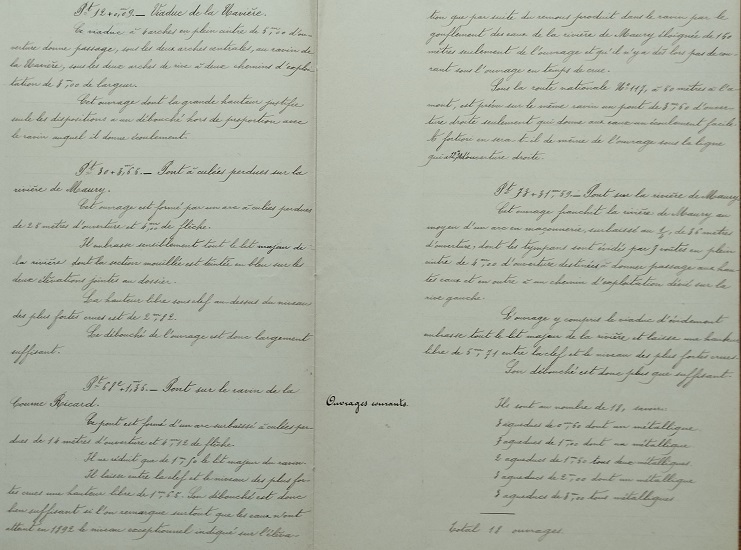 Pt 12+0,09 _ Viaduc de la Havière.
Ce viaduc à 4 arches en plein cintre de 8m,00 d'ou-
verture donne passage, sous les deux arches centrales, au ravin de
la Havière, sous les deux arches de rive à deux chemins d'exploi-
tation de 8m,00 de largeur.
Cet ouvrage dont la grande hauteur justifie
seule les dispositions a un débouché hors de proportion avec
le ravin auquel il donne écoulement.
_ Pont à culées perdues sur la
rivière de Maury.
Cet ouvrage est formé par un arc à culées perdues
de 28 mètres d'ouverture et de flèche.
Il embrasse sensiblement tout le lit majeur de
la rivière dont la section mouillée est teintée en bleu sur les
deux élévations jointes au dossier.
La hauteur libre sous clef au-dessus du niveau
des plus fortes crues est de 2m,82.
Le débouché de l'ouvrage est donc largement
suffisant.
_ Pont sur le ravin de la
Coume Ricard.
Ce pont est formé d'un arc surbaissé à culées per-
dues de 18 mètres d'ouverture et de flèche
Il ne réduit que de 1m,50 le lit majeur du ravin.
Il laisse entre la clef et le niveau des plus for-
tes crues une hauteur libre de Son débouché est donc
bien suffisant si l'on remarque surtout que les eaux n'ont
atteint en 1892 le niveau exceptionnel indiqué sur l'éléva-
tion que par suite du remous produit dans le ravin par le
gonflement des eaux de la rivière de Maury éloignée de 160
mètres seulement de l'ouvrage et qu'il n'y a dès lors pas de cou-
rant sous l'ouvrage en temps de crue.
Sous la route nationale No 117, à 60 mètres à l'a-
mont, est prévu sur le même ravin un pont de d'ouver-
ture droite seulement qui donne aux eaux un écoulement facile.
à fortiori en sera-t-il de même de l'ouvrage sous la ligne
qui a d'ouverture droite.
_ Pont sur la rivière de Maury.
Cet ouvrage franchit la rivière de Maury au
moyen d'un arc en maçonnerie, surbaissé au de 36 mètres
d'ouverture, dont les tympans sont évidés par voûtes en plein
cintre de d'ouverture destinées à donner passage aux hau-
tes eaux et en outre à un chemin d'exploitation dévié sur la
rive gauche.
L'ouvrage y compris le viaduc d'évidement
embrasse tout le lit majeur de la rivière et laisse une hauteur
libre de 5m,71 entre la clef et le niveau des plus fortes crues.
Son débouché est donc plus que suffisant.
Ouvrages courants.
Ils sont au nombre de 18, savoir:
aqueducs de 0m,60 dont un métallique
aqueducs de 1m,00 dont un métallique
2 aqueducs de 1m,50 tous deux métalliques
aqueducs de 2m,00 dont un métallique
3 aqueducs de tous métalliques
Total 18 ouvrages.